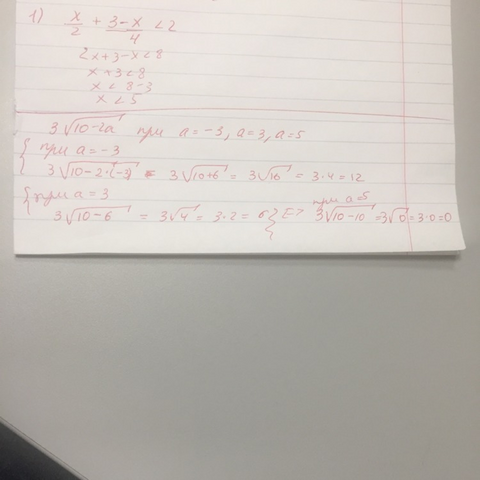 1) x/2 + 3-x/4 < 2
2x+3-x<8
x+3<8
x < 8-3
x < 5
3√10-2a при a=-3, a=3, a=5
{ при a=-3
3√10-2·(-3) = 3√10+6 = 3√16 = 3·4=12
{ при a=3
3√10-6 = 3√4 = 3·2 = 6 { => при a=5 3√10-10 =3√0=3·0=0